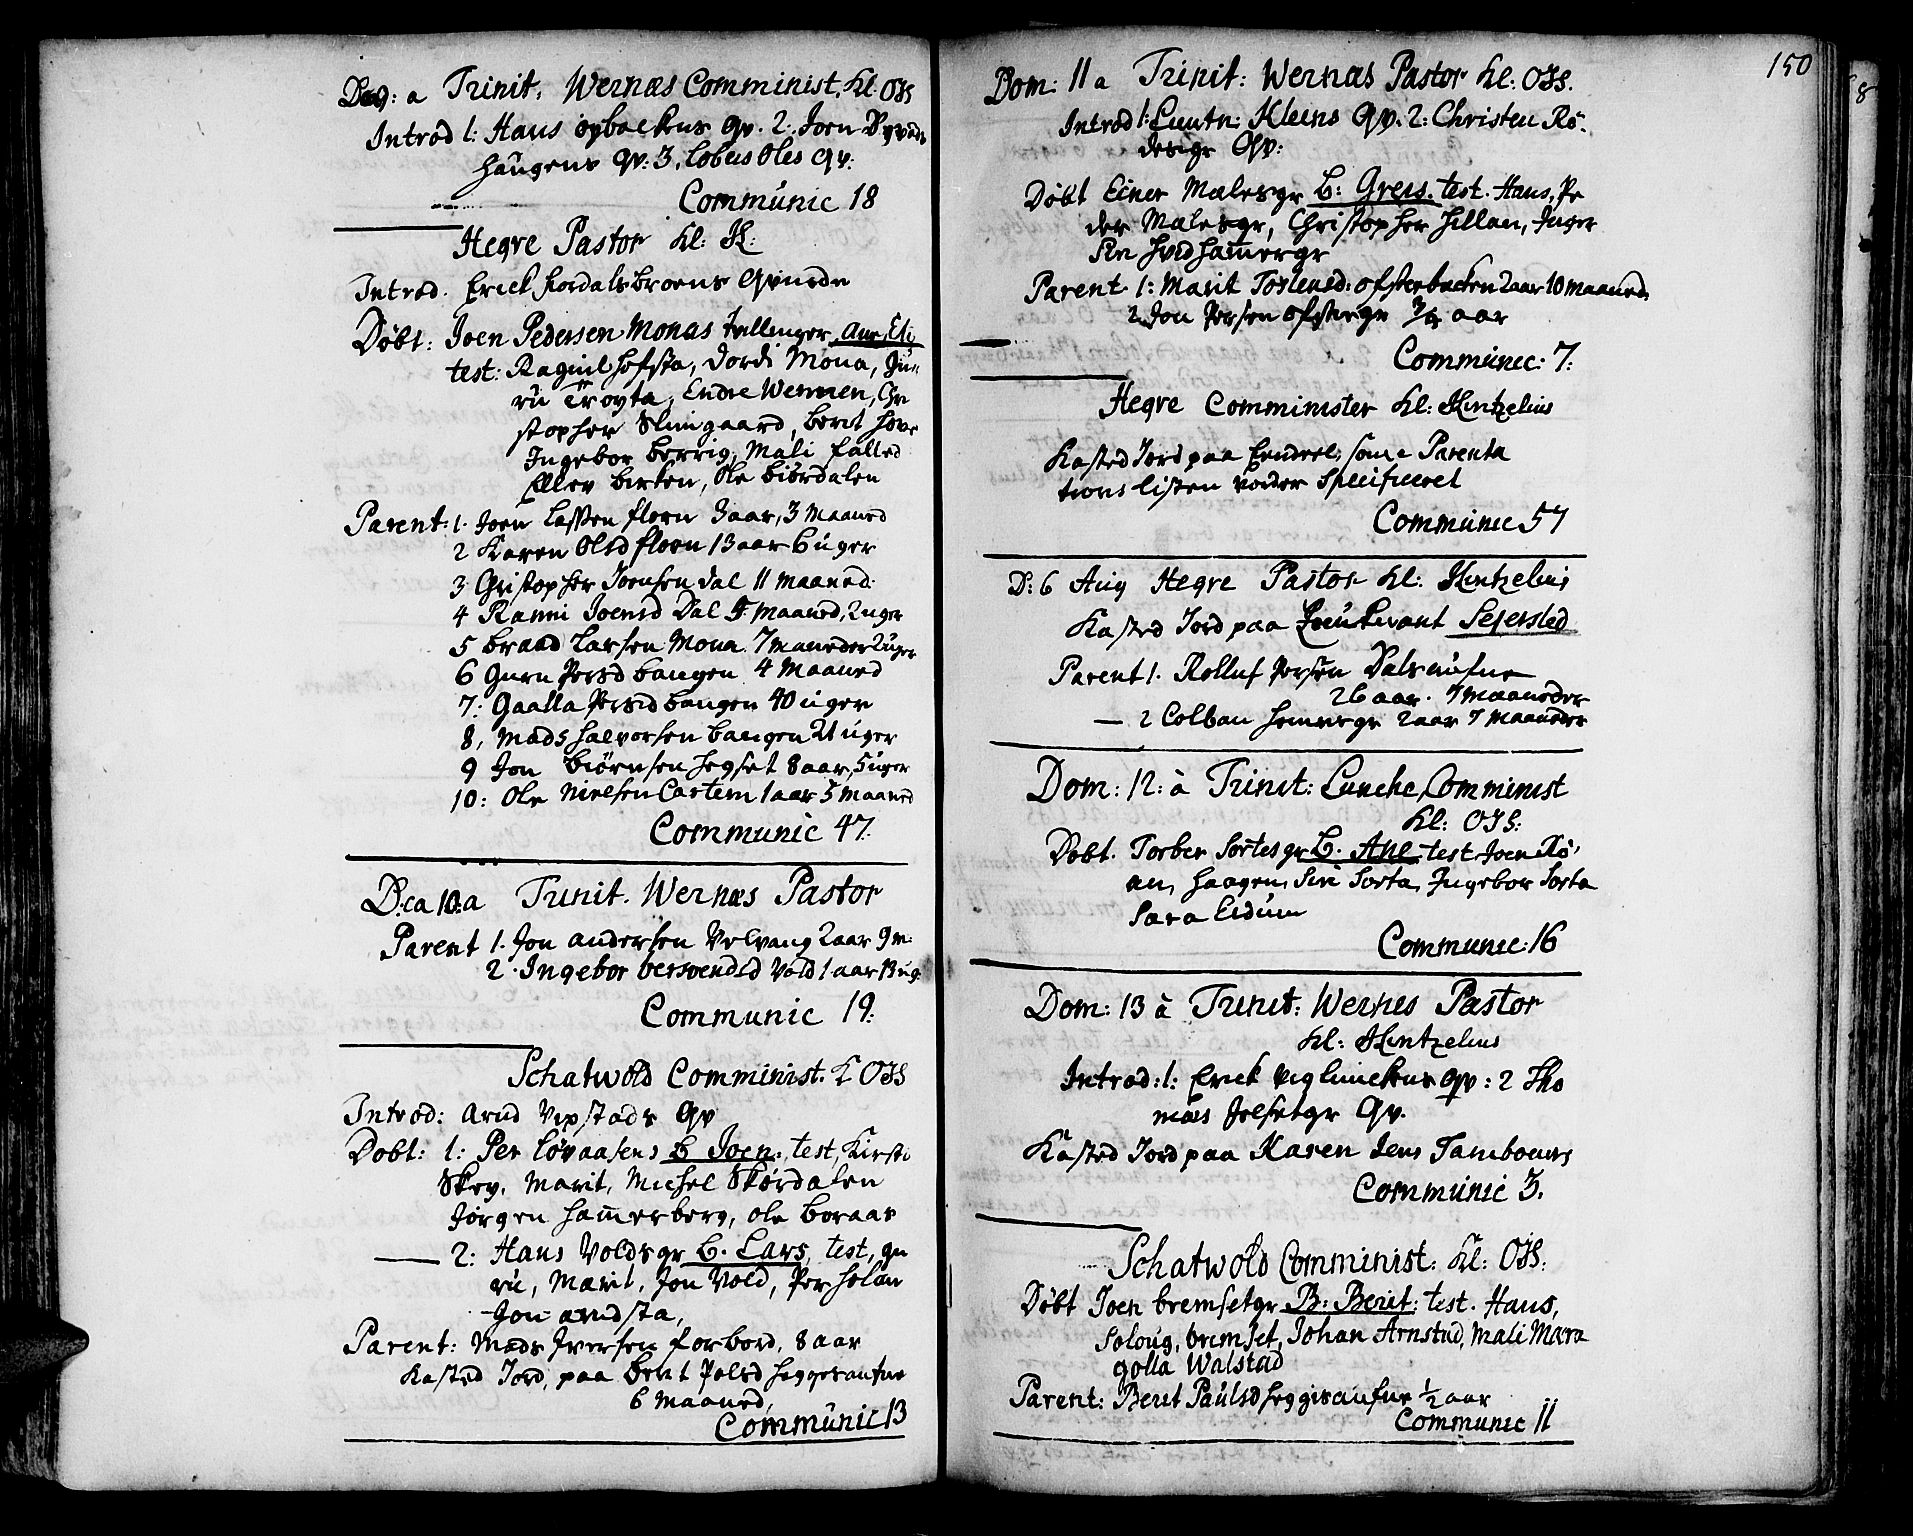 Do9: a Trinit. Wernæs Comminist. Kl. OJS
Introd 1: Haus oybackens Qv. 2: Joen Dyvads
haugens Qv: 3. Cobus Oles Qv:
Communic 18
Hegre Pastor Kl: H:
Introd. Erick fordalsbroens Qvinde
Døbt: Joen Pedersen Monas tvillinger Ane, Eli
test: Ragnil hofsta, Jordi Mona, Gu
ru Trøyta, Endre Wermen, Chr
stopher Slungaard, berit hove
Ingebor berrig, Mali falled
Ellev birken, Ole biørdalen
Parent: 1. Joen Lassen floen 3 aar, 3 Maaned
2 Karen Olsd floen 13 aar 6 uger
3 Christopher Joensen Dal 11 maaned:
4 Ranni Joensd Dal 5 maaned, 2 uger
5 Braad Larsen Mona 7 maaneder 2 uger
6 Guru Persd bangen 4 Maaned
7: Gaalla Persd bangen 40 uger
8, Mads halvorsen bangen 21 uger
9 Jon Biørnsen hegset 8 aar, 5 uger
10: Ole Nielsen Castem 1 aar 5 maaned
Communic 47.
D:ca 10 a Trinit. Wernæs Pastor
Parent 1. Jon andersen Velvang 2 aar 9 m:
2. Ingebor bersvendsd Vold 1 aar 13 ug
Communic 19.
Schatwold Comminist. K OJS
Introd: Arnd Vepstads Qv
Døbt: 1: Per løvaasens B Joen, test, Kirsti
Skey, Marit, Michel Skørdalen
Jørgen hamerberg, ole boraas
2: Hans Voldsgr B. Lars, test, gu
ru, Marit, Jon Vold, Per holan
Jon arndsta,
Parent: Mads Iversen forbord, 8 aar
Kasted Jord, paa berit Polsd heggesaufne
6 Maaned,
Communic 13
150
Dom: 11 a Trinit: Wernæs Pastor Kl: OJS.
Introd 1: Leutn: Kleins Qv. 2: Christen Rø
desgr Qv:
Døbt Einer Mælesgr B: Greis. test. Hans, Pe
der Mælesgr, Christopher hillan, Inger
Siri hvidhamergr
Parent. 1: Marit Tostensd: ofsterbacken 2 aar 10 maaned
2 Jon Persen ofstergr 3/4 aar
Communic: 7:
Hegre Comminister Kl: Hintzelius
Kasted Jord paa Eendeel, som a Parenta
tions listen vorder Specificeret
Communic 57
D: 6 Aug Hegre Pastor Kl: Hintzelius
Kasted Jord paa Leutenant Sejersted
Parent 1. Rolluf Persen Dalsaufne
26 aar. 7 Maaneder
2 Colban hemregr 2 aar 7 Maaneder
Dom: 12: à Trinit: Luncke, Comminist
Kl: OJS:
Døbt. Torber Sortesgr B. Ane test Joen Rø
an, haagen, Siri Sorta, Ingebor Sorta
Sara Eidum
Communic: 16
Dom: 13 à Trinit: Wernes Pastor
Kl: Hintzelius
Introd: 1: Erick Viglunckens qv: 2 Tho
mæs Jelsetgr Qv.
Kasted Jord paa Karen Jens Tambours
Communic 3.
Schatwold Comminist: Kl: OJS.
Døbt Joen bremsetgr B: Berit: test. Haus,
Soloug, bremset, Johan Arnstad, Mali Mæra
golla Walstad
Parent: Berit Paulsd heggisaufne 1/2 aar
Communic 11